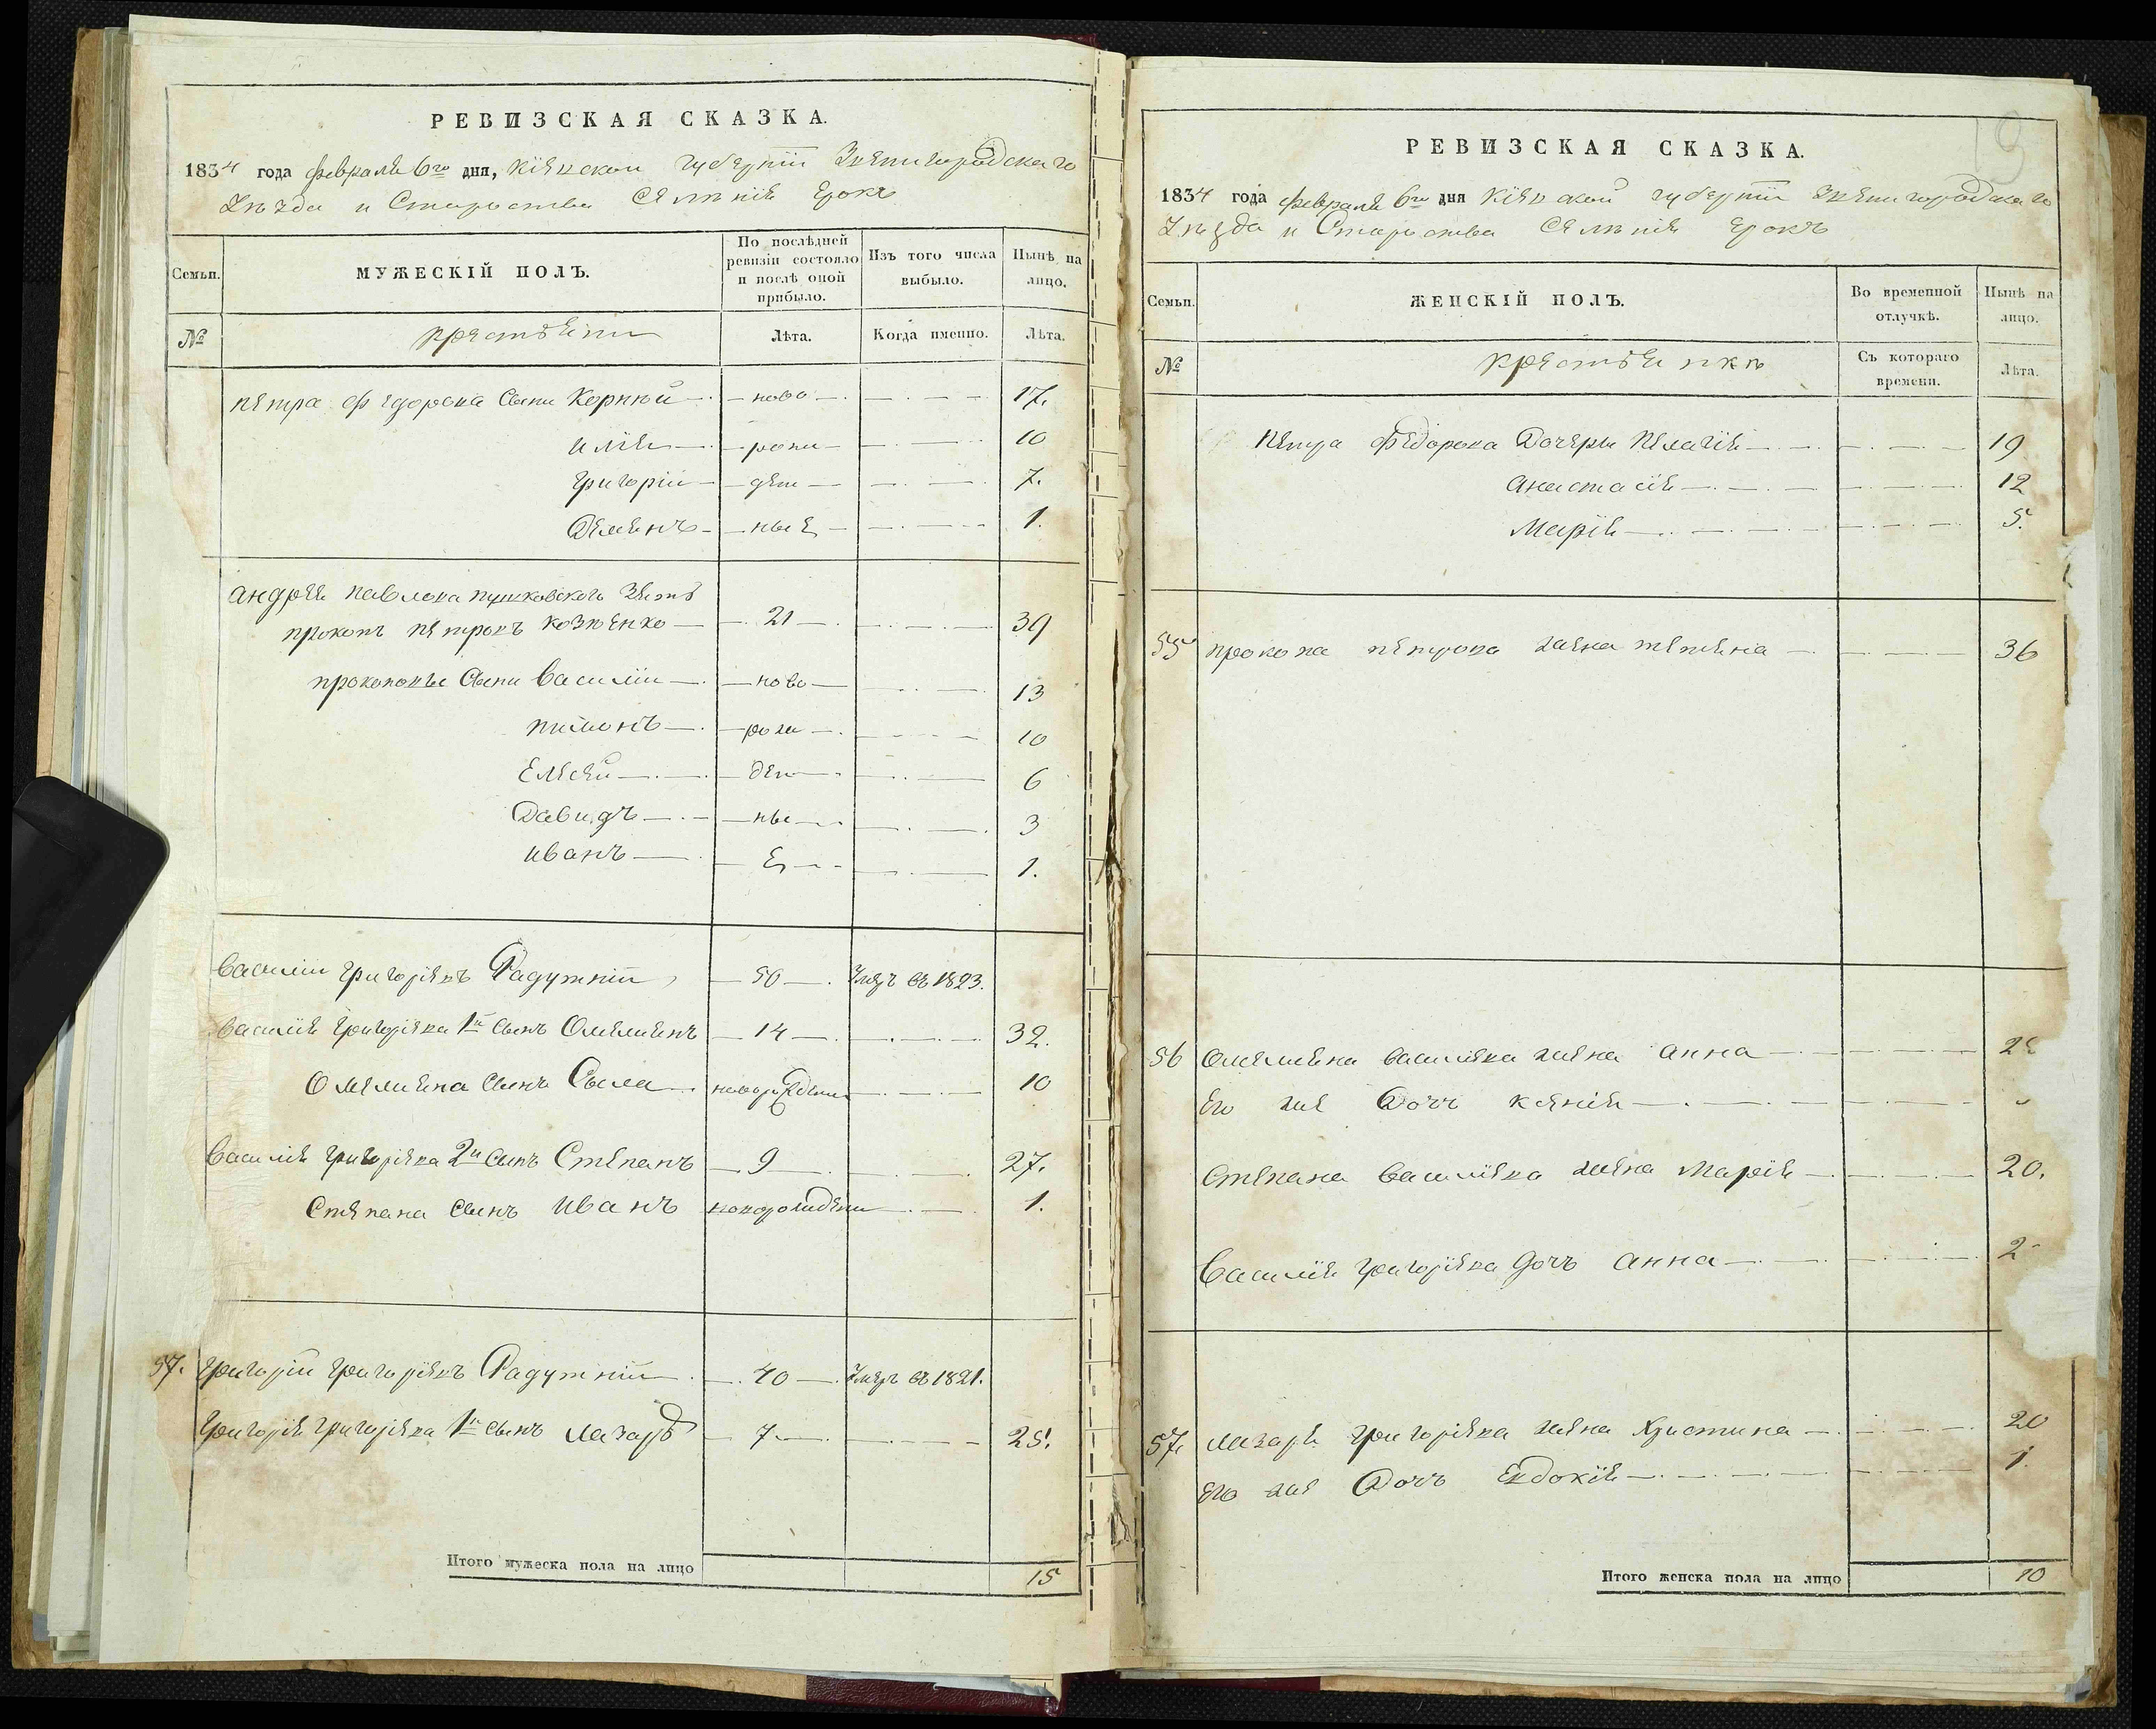 РЕВИЗСКАЯ СКАЗКА.
1834 года февраля 6го дня, Кіевской губерніи Звенигородскаго
Уѣзда и Староства Селѣнія Ерокъ
Семьи.
МУЖЕСКІЙ ПОЛЪ.
По послѣдней ревизіи состояло и послѣ оной прибыло.
Изъ того числа выбыло.
Нынѣ на лицо.
№
крестьяни
Лѣта.
Когда именно.
Лѣта.
петра федорова сыни Корней — ново — 17.
илія — рожи — 10
григорій — ден — 7.
Демянъ — ные — 1.
андрея павлова пушковского зять
прокопъ петровъ козенко — 21 — 39
прокоповы сыни василій — ново — 13
пимонъ — рожи — 10
Елесей — ден — 6
Давидъ — ны — 3
иванъ — е — 1.
василій григоріевъ Радужній — 50 — Умеръ въ 1823.
василія григоріева 1й сынъ Омелиянъ — 14 — 32.
Омелияна сынъ Сыла — новорожденны — 10
василія григоріева 2й сынъ Степанъ — 9 — 27.
Степана сынъ иванъ новорожденны — 1.
57. григорій григоріевъ Радужній — 40 — Умеръ въ 1821.
григорія григоріева 1й сынъ лазарь — 7 — 25.
Итого мужеска пола на лицо 15
19
РЕВИЗСКАЯ СКАЗКА.
1834 года февраля 6го дня Кіевской губерніи Звенигородскаго
Уѣзда и Староства Селѣнія Ерокъ
Семьи.
ЖЕНСКІЙ ПОЛЪ.
Во временной отлучкѣ.
Нынѣ на лицо.
№
крестьянкѣ
Съ котораго времени.
Лѣта.
петра федорова Дочери пелагія — 19
анастасія — 12
Марія — 5.
55 прокопа петрова жена тетяна — 36
56 омелияна василіева жена анна — 2
его же Дочь ксенія —
степана василіева жена Марія — 20.
василія григоріева дочь анна — 2
57. лазаря григоріева жена Христина — 20
его же Дочь Евдокія — 1.
Итого женска пола на лицо 10